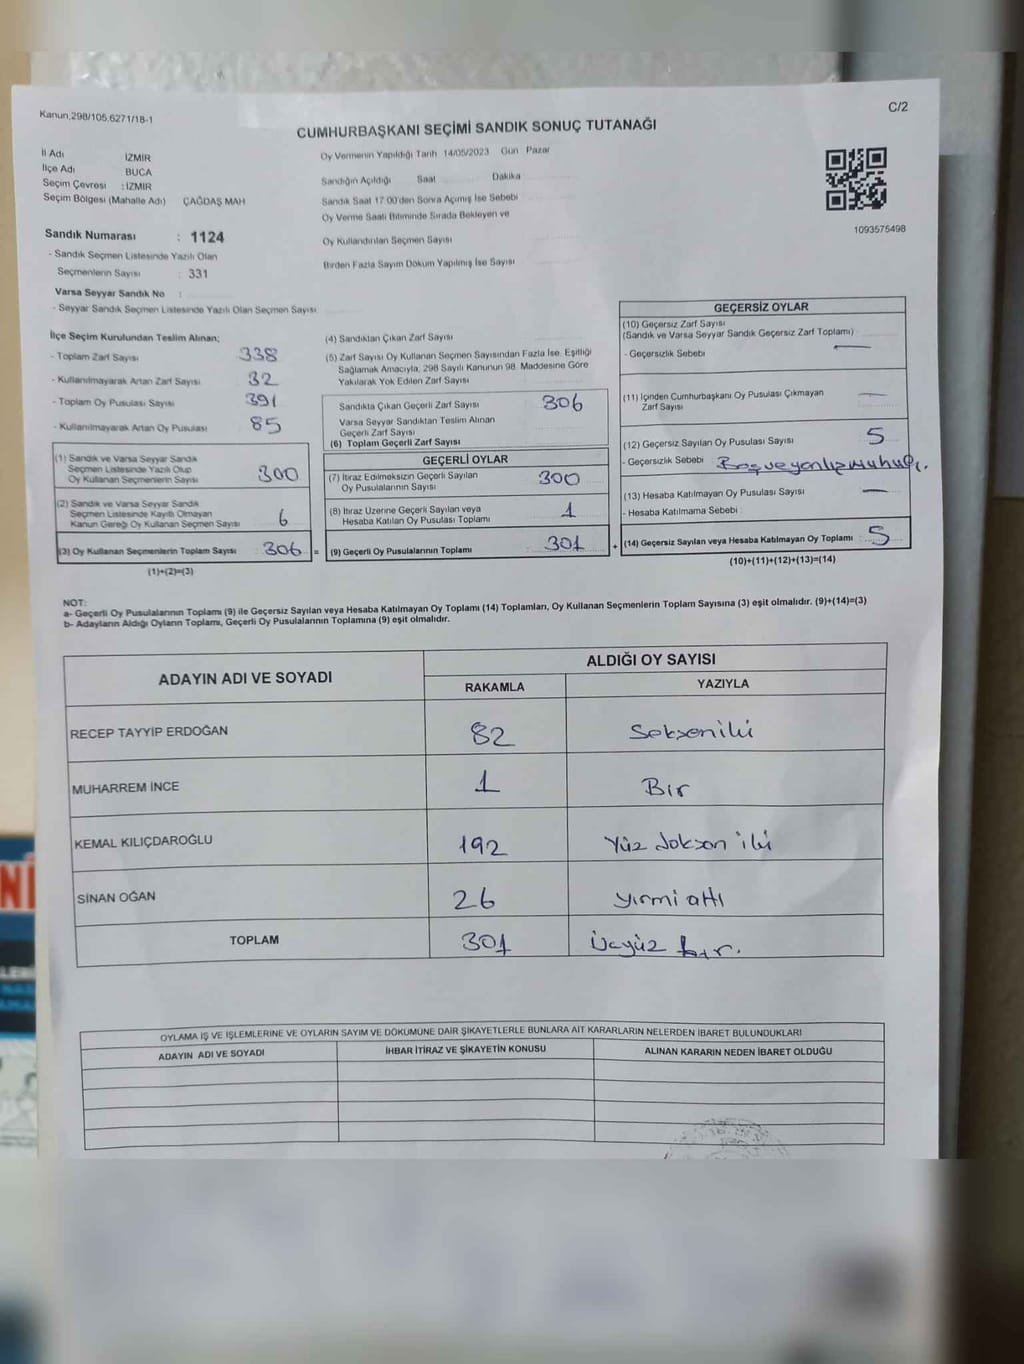 Kanun,298/105,6271/18-1
C/2
CUMHURBAŞKANI SEÇİMİ SANDIK SONUÇ TUTANAĞI
İl Adı İZMİR
İlçe Adı BUCA
Seçim Çevresi : İZMİR
Seçim Bölgesi (Mahalle Adı) ÇAĞDAŞ MAH
Oy Vermenin Yapıldığı Tarih 14/05/2023 Gün Pazar
Sandığın Açıldığı Saat Dakika
Sandık Saat 17.00'den Sonra Açımış İse Sebebi
Oy Verme Saati Bitiminde Sırada Bekleyen ve
Oy Kullandırılan Seçmen Sayısı
Birden Fazla Sayım Döküm Yapılmış İse Sayısı
1093575498
Sandık Numarası : 1124
- Sandık Seçmen Listesinde Yazılı Olan
Seçmenlerin Sayısı : 331
Varsa Seyyar Sandık No :
- Seyyar Sandık Seçmen Listesinde Yazılı Olan Seçmen Sayısı
İlçe Seçim Kurulundan Teslim Alınan;
- Toplam Zarf Sayısı 338
- Kullanılmayarak Artan Zarf Sayısı 32
- Toplam Oy Pusulası Sayısı 391
- Kullanılmayarak Artan Oy Pusulası 85
(1) Sandık ve Varsa Seyyar Sandık
Seçmen Listesinde Yazılı Olup
Oy Kullanan Seçmenlerin Sayısı 300
(2) Sandık ve Varsa Seyyar Sandık
Seçmen Listesinde Kayıtlı Olmayan
Kanun Gereği Oy Kullanan Seçmen Sayısı 6
(3) Oy Kullanan Seçmenlerin Toplam Sayısı 306 =
(1)+(2)=(3)
(4) Sandıktan Çıkan Zarf Sayısı
(5) Zarf Sayısı Oy Kullanan Seçmen Sayısından Fazla İse, Eşitliği
Sağlamak Amacıyla, 298 Sayılı Kanunun 98. Maddesine Göre
Yakılarak Yok Edilen Zarf Sayısı
Sandıkta Çıkan Geçerli Zarf Sayısı 306
Varsa Seyyar Sandıktan Teslim Alınan
Geçerli Zarf Sayısı
(6) Toplam Geçerli Zarf Sayısı
GEÇERLİ OYLAR
(7) İtiraz Edilmeksizin Geçerli Sayılan
Oy Pusulalarının Sayısı 300
(8) İtiraz Üzerine Geçerli Sayılan veya
Hesaba Katılan Oy Pusulası Toplamı 1
(9) Geçerli Oy Pusulalarının Toplamı 301 +
GEÇERSİZ OYLAR
(10) Geçersiz Zarf Sayısı
(Sandık ve Varsa Seyyar Sandık Geçersiz Zarf Toplamı)
- Geçersizlik Sebebi —
(11) İçinden Cumhurbaşkanı Oy Pusulası Çıkmayan
Zarf Sayısı —
(12) Geçersiz Sayılan Oy Pusulası Sayısı 5
- Geçersizlik Sebebi : Boş ve yanlış
(13) Hesaba Katılmayan Oy Pusulası Sayısı —
- Hesaba Katılmama Sebebi :
(14) Geçersiz Sayılan veya Hesaba Katılmayan Oy Toplamı : 5
(10)+(11)+(12)+(13)=(14)
NOT:
a- Geçerli Oy Pusulalarının Toplamı (9) ile Geçersiz Sayılan veya Hesaba Katılmayan Oy Toplamı (14) Toplamları, Oy Kullanan Seçmenlerin Toplam Sayısına (3) eşit olmalıdır. (9)+(14)=(3)
b- Adayların Aldığı Oyların Toplamı, Geçerli Oy Pusulalarının Toplamına (9) eşit olmalıdır.
ADAYIN ADI VE SOYADI
ALDIĞI OY SAYISI
RAKAMLA YAZIYLA
RECEP TAYYİP ERDOĞAN 82 Seksen iki
MUHARREM İNCE 1 Bir
KEMAL KILIÇDAROĞLU 192 Yüz doksan iki
SİNAN OĞAN 26 yirmi altı
TOPLAM 301 Üçyüz bir.
OYLAMA İŞ VE İŞLEMLERİNE VE OYLARIN SAYIM VE DÖKÜMÜNE DAİR ŞİKAYETLERLE BUNLARA AİT KARARLARIN NELERDEN İBARET BULUNDUKLARI
ADAYIN ADI VE SOYADI İHBAR İTİRAZ VE ŞİKAYETİN KONUSU ALINAN KARARIN NEDEN İBARET OLDUĞU